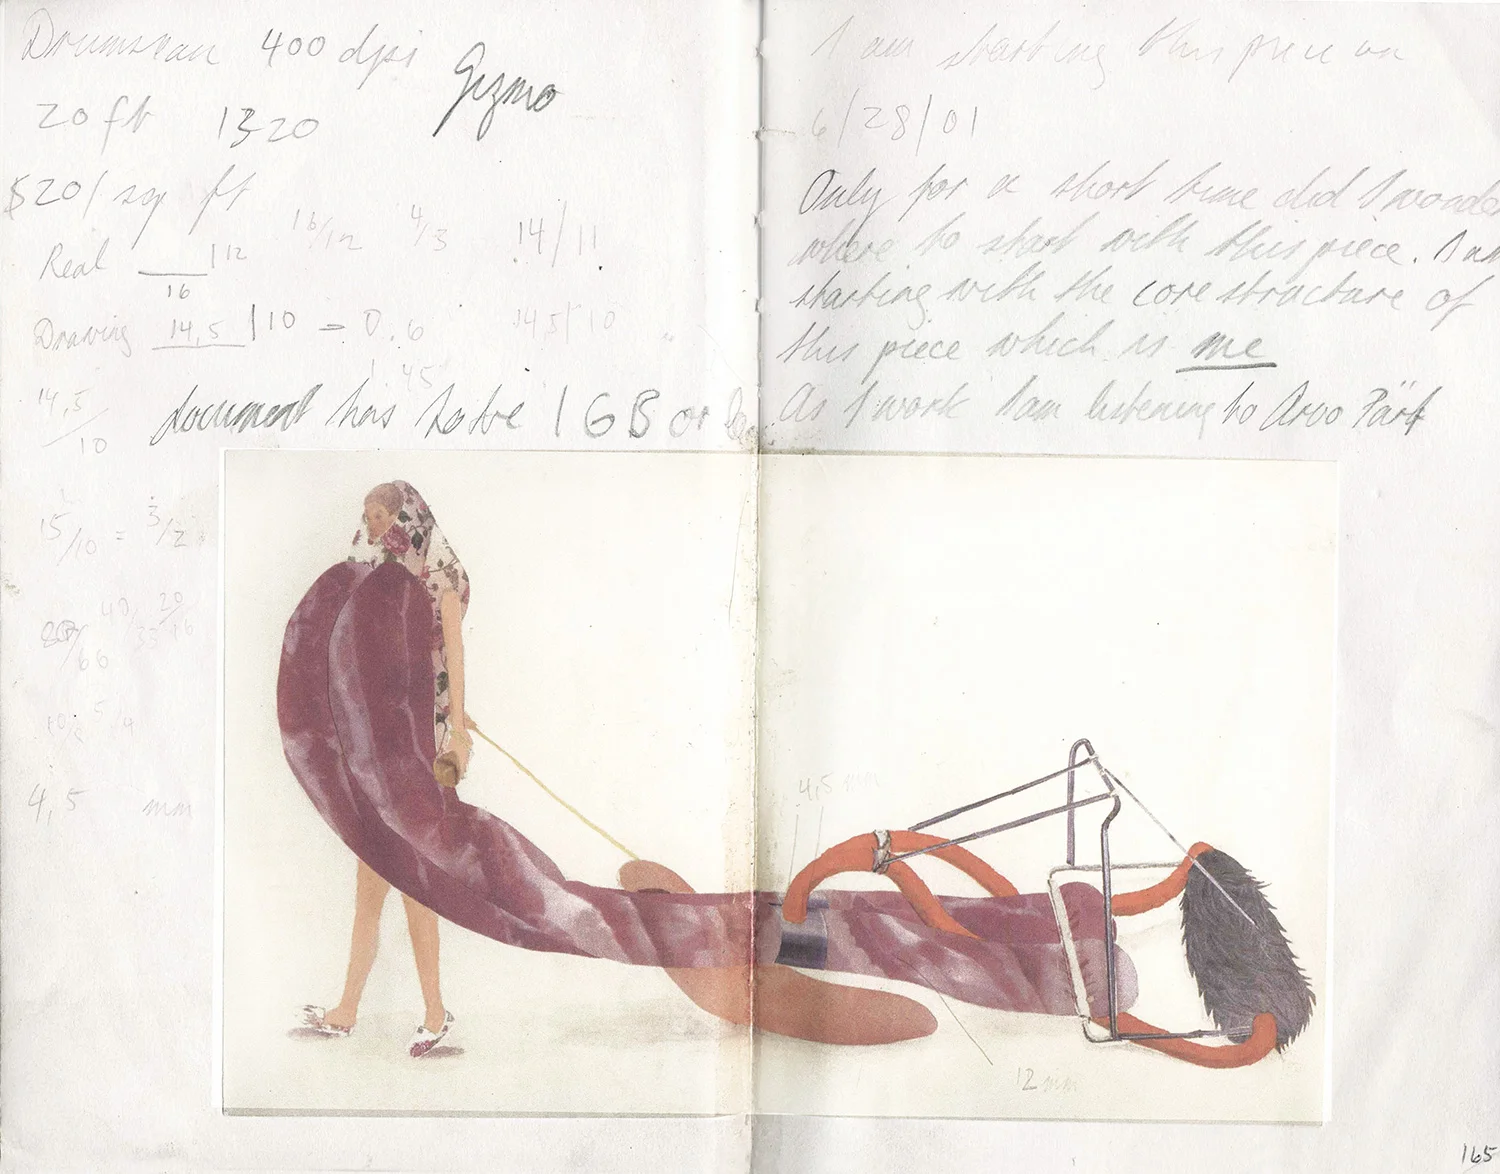 Drumscan 400 dpi Gizmo
20 ft 1320
$20/sq ft
16/12 4/3 14/11
Real 16/12
Drawing 14,5/10 = 0.6 14,5/10
1.45
14,5/10
document has to be 1 GB or
15/10 = 3/2
66
4,5 mm
I am starting this piece on
6/28/01
Only for a short time did I wonder
where to start with this piece. I am
starting with the core structure of
this piece which is me
As I work I am listening to Arvo Pärt
4,5 mm
12 mm
165